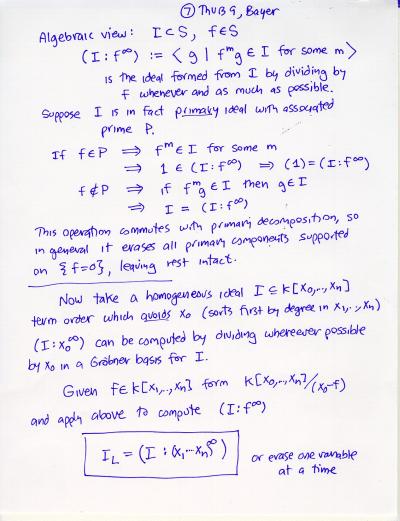 ⑦ ThuB9, Bayer
Algebraic view: I⊂S, f∈S
(I:f^∞) := ⟨ g | f^m g ∈ I for some m ⟩
is the ideal formed from I by dividing by
f whenever and as much as possible.
Suppose I is in fact primary ideal with associated
prime P.
If f∈P ⇒ f^m ∈ I for some m
⇒ 1 ∈ (I:f^∞) ⇒ (1)=(I:f^∞)
f∉P ⇒ if f^m g ∈ I then g∈I
⇒ I = (I:f^∞)
This operation commutes with primary decomposition, so
in general it erases all primary components supported
on {f=0}, leaving rest intact.
Now take a homogeneous ideal I ⊆ k[x₀,..,xₙ]
term order which avoids x₀ (sorts first by degree in x₁,..,xₙ)
(I:x₀^∞) can be computed by dividing whereever possible
by x₀ in a Gröbner basis for I.
Given f∈k[x₁,..,xₙ] form k[x₀,..,xₙ]/(x₀-f)
and apply above to compute (I:f^∞)
I_L = (I : (x₁⋯xₙ)^∞)
or erase one variable
at a time